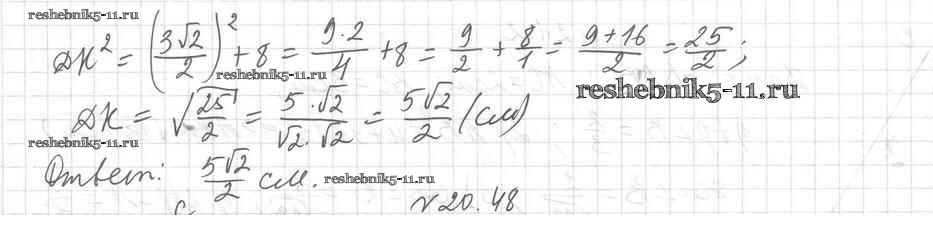 reshebnik5-11.ru
DK² = (3√2/2)² + 8 = 9·2/4 + 8 = 9/2 + 8/1 = 9+16/2 = 25/2;
reshebnik5-11.ru
reshebnik5-11.ru
DK = √25/2 = 5·√2/√2·√2 = 5√2/2 (см)
reshebnik5-11.ru
Ответ: 5√2/2 см.
reshebnik5-11.ru
N 20.48